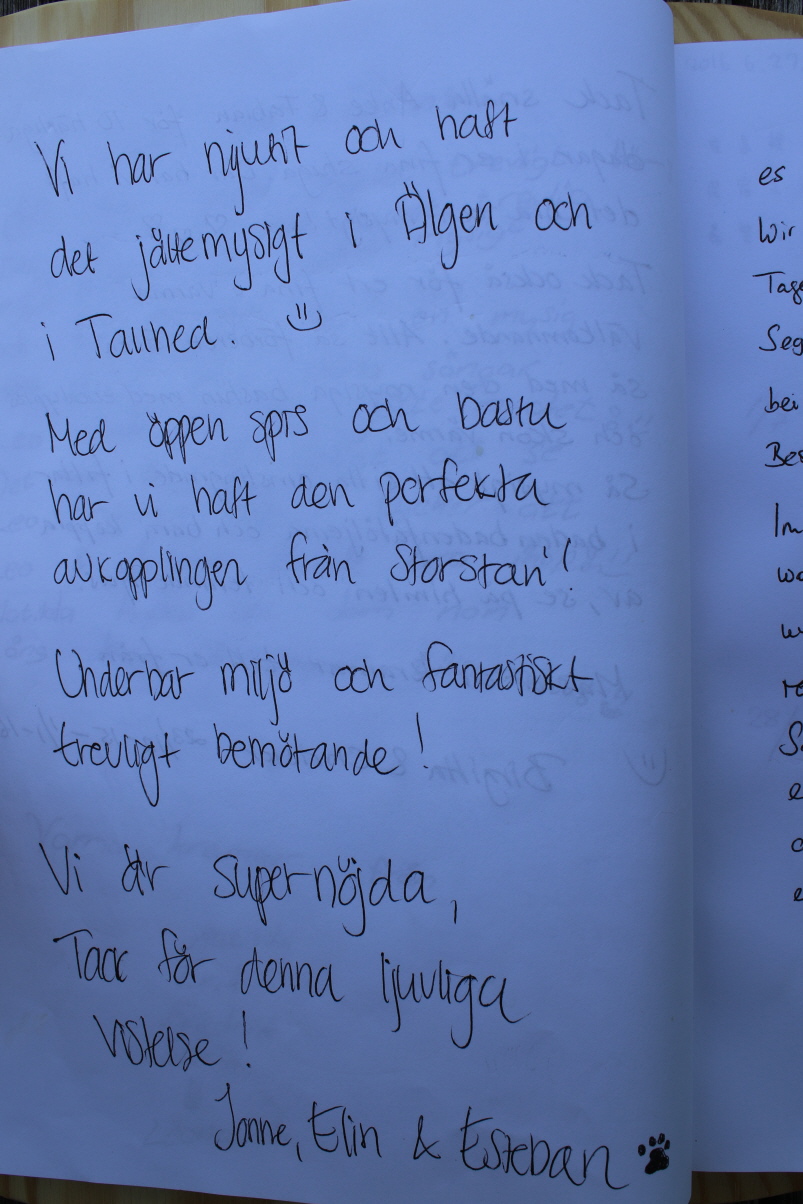 Vi har njutit och haft
det jättemysigt i Älgen och
i Tallhed.
Med öppen spis och bastu
har vi haft den perfekta
avkopplingen från storstan'!
Underbar miljö och fantastiskt
trevligt bemötande!
Vi är supernöjda,
Tack för denna ljuvliga
vistelse!
Jonne, Elin & Esteban
es
Wir
Tage
Seg
bei
Im